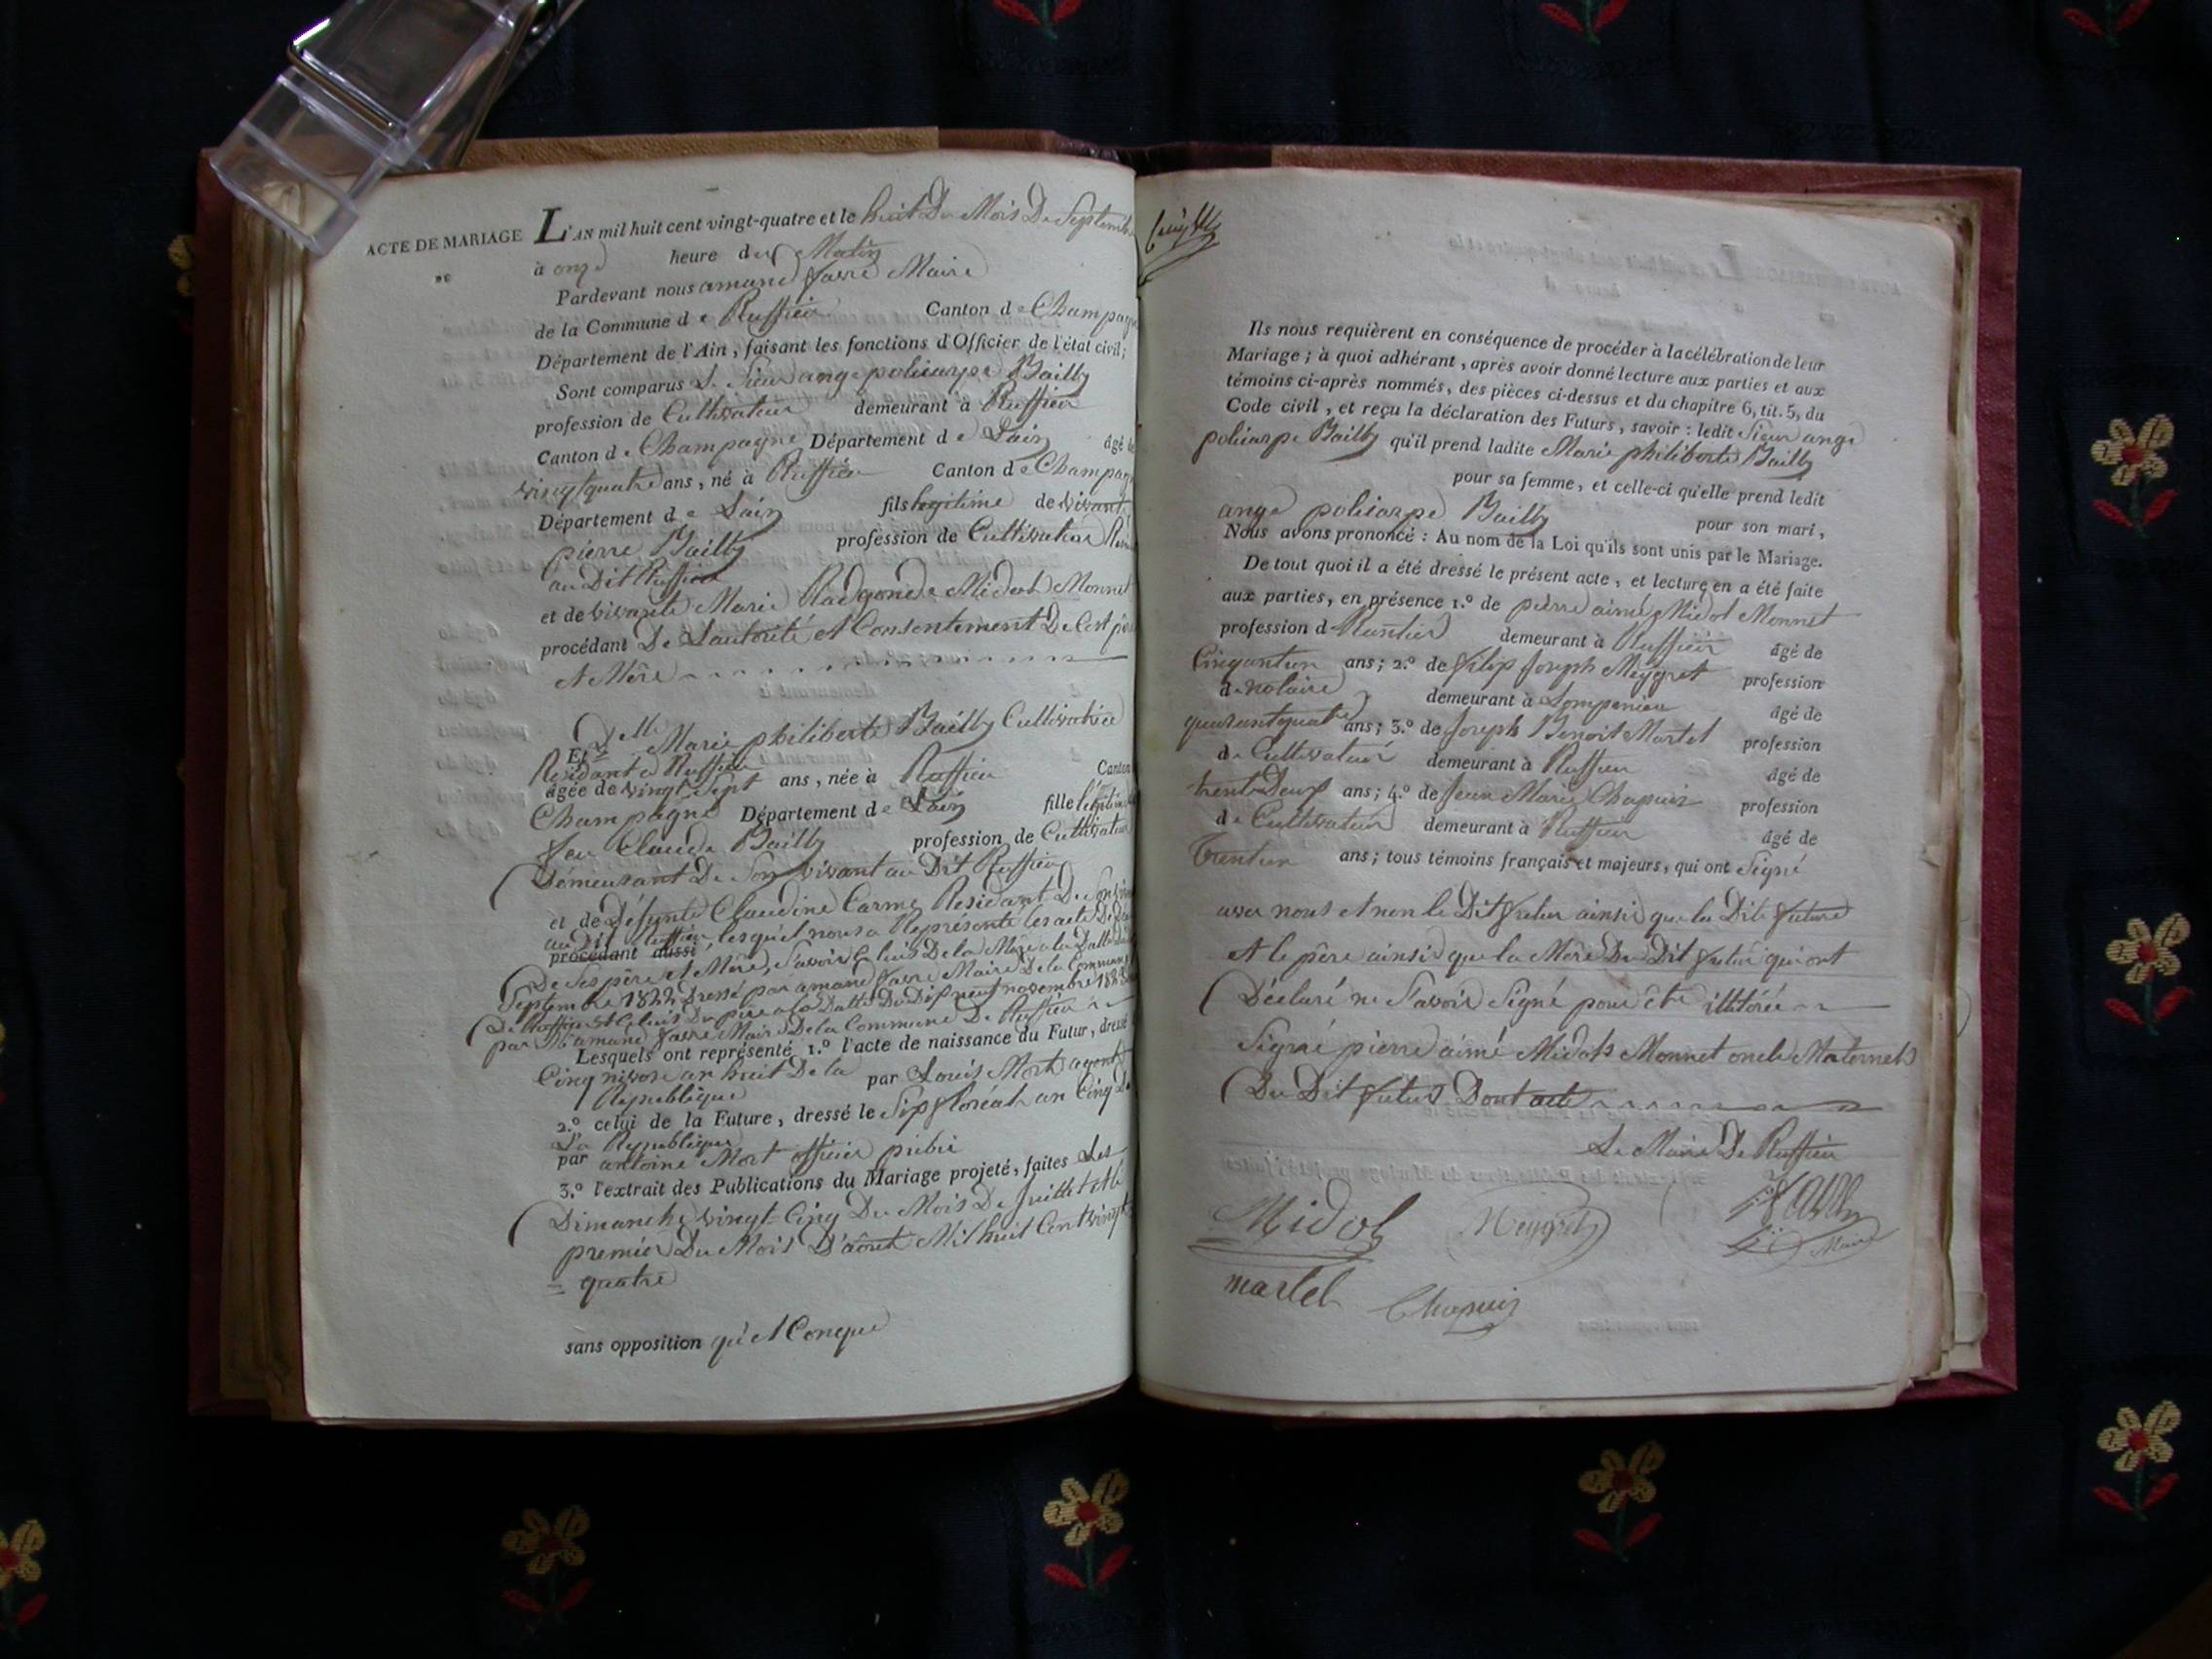 ACTE DE MARIAGE
DE
L'AN mil huit cent vingt-quatre et le huit Du Mois De Septembre
à onze heure du Matin
Pardevant nous amand favre Maire
de la Commune de Ruffieu Canton de Champagne
Département de l'Ain, faisant les fonctions d'Officier de l'état civil;
Sont comparus Le Sieur ange policarpe Bailly
profession de Cultivateur demeurant à Ruffieu
Canton de Champagne Département de Lain âgé de
vingtquatre ans, né à Ruffieu Canton de Champagne
Département de Lain fils legitime de vivant
pierre Bailly profession de Cultivateur
au Dit Ruffieu
et de vivante Marie Radgonde Midol Monnet
procédant De Lautorité et Consentement De Cest père
et Mère
Et de Dlle Marie philiberte Bailly Cultivatrice
Residant a Ruffieu
âgée de vingt Sept ans, née à Ruffieu Canton
Champagne Département de Lain fille légitime
feu Claude Bailly profession de Cultivateur
Démeurant De Son vivant au Dit Ruffieu
et de Défunte Claudine Carme Residant De Son
au Dit Ruffieu, lesquel nous a Représenté les acte De
procédant aussi
De Ses père et Mère, Savoir Celuis De la Mère a la Datte
Septembre 1822 Dressé par amand favre Maire De la Commune
De Ruffieu et Celuis Du père a la Datte Du Dix neuf novembre
par amand favre Maire De la Commune De Ruffieu
Lesquels ont représenté 1.º l'acte de naissance du Futur, dressé
Cinq nivose an huit De la par Louis Mort agent
Republique
2.º celui de la Future, dressé le Six floréal an Cinq De
La Republique
par antoine Mort officier public
3.º l'extrait des Publications du Mariage projeté, faites Les
Dimanche vingt-Cinq Du Mois De Juillet et le
premier Du Mois D'aôut Mil huit Cent vingt
= quatre
sans opposition qu'el Conque
Ils nous requièrent en conséquence de procéder à la célébration de leur
Mariage; à quoi adhérant, après avoir donné lecture aux parties et aux
témoins ci-après nommés, des pièces ci-dessus et du chapitre 6, tit. 5, du
Code civil, et reçu la déclaration des Futurs, savoir : ledit Sieur ange
policarpe Bailly qu'il prend ladite Marie philiberte Bailly
pour sa femme, et celle-ci qu'elle prend ledit
ange policarpe Bailly pour son mari,
Nous avons prononcé : Au nom de la Loi qu'ils sont unis par le Mariage.
De tout quoi il a été dressé le présent acte, et lecture en a été faite
aux parties, en présence 1.º de pierre aimé Midol Monnet
profession d Rantier demeurant à Ruffieu âgé de
Cinquantun ans; 2.º de filip Joseph Meygret profession
de notaire demeurant à Lompnieu âgé de
quarantquatre ans; 3.º de Joseph Benoit Martel profession
de Cultivateur demeurant à Ruffieu âgé de
trent-Deux ans; 4.º de Jean Marie Chapuis profession
de Cultivateur demeurant à Ruffieu âgé de
Trentun ans; tous témoins français et majeurs, qui ont Signé
avec nous et non le Dit futur ainsi que la Dite future
et le père ainsi que la Mère Du Dit futur qui ont
Déclaré ne Savoir Signé pour être illitérée
Signé pierre aimé Midol Monnet oncle Maternel
Du Dit futur Dont acte
Le Maire De Ruffieu
Midol Meygret favre
Maire
martel Chapuis